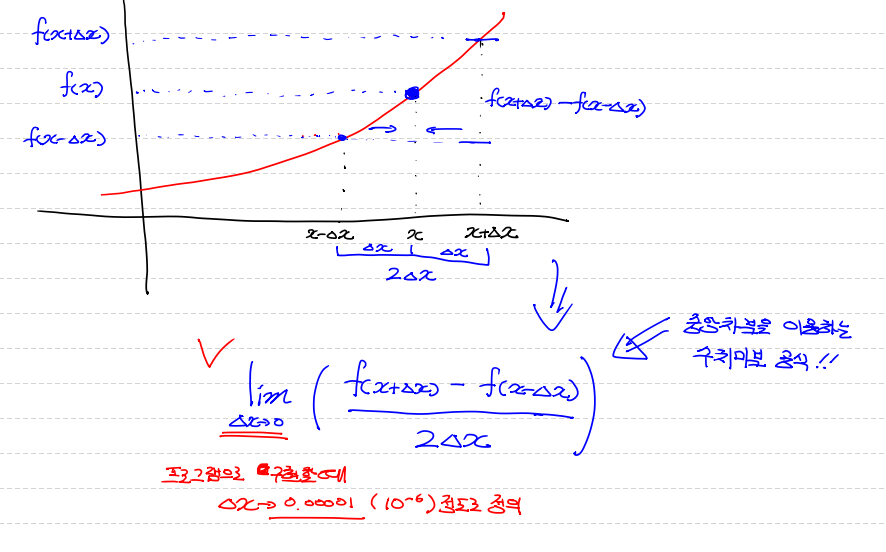 f(x+Δx)
f(x)
f(x-Δx)
f(x+Δx) - f(x-Δx)
x-Δx x x+Δx
Δx Δx
2Δx
중앙차분을 이용하는
수치미분 공식!!
lim ( f(x+Δx) - f(x-Δx) )
Δx→0
2Δx
프로그램으로 구현할때
Δx→0.00001 (10⁻⁶) 정도로 정의